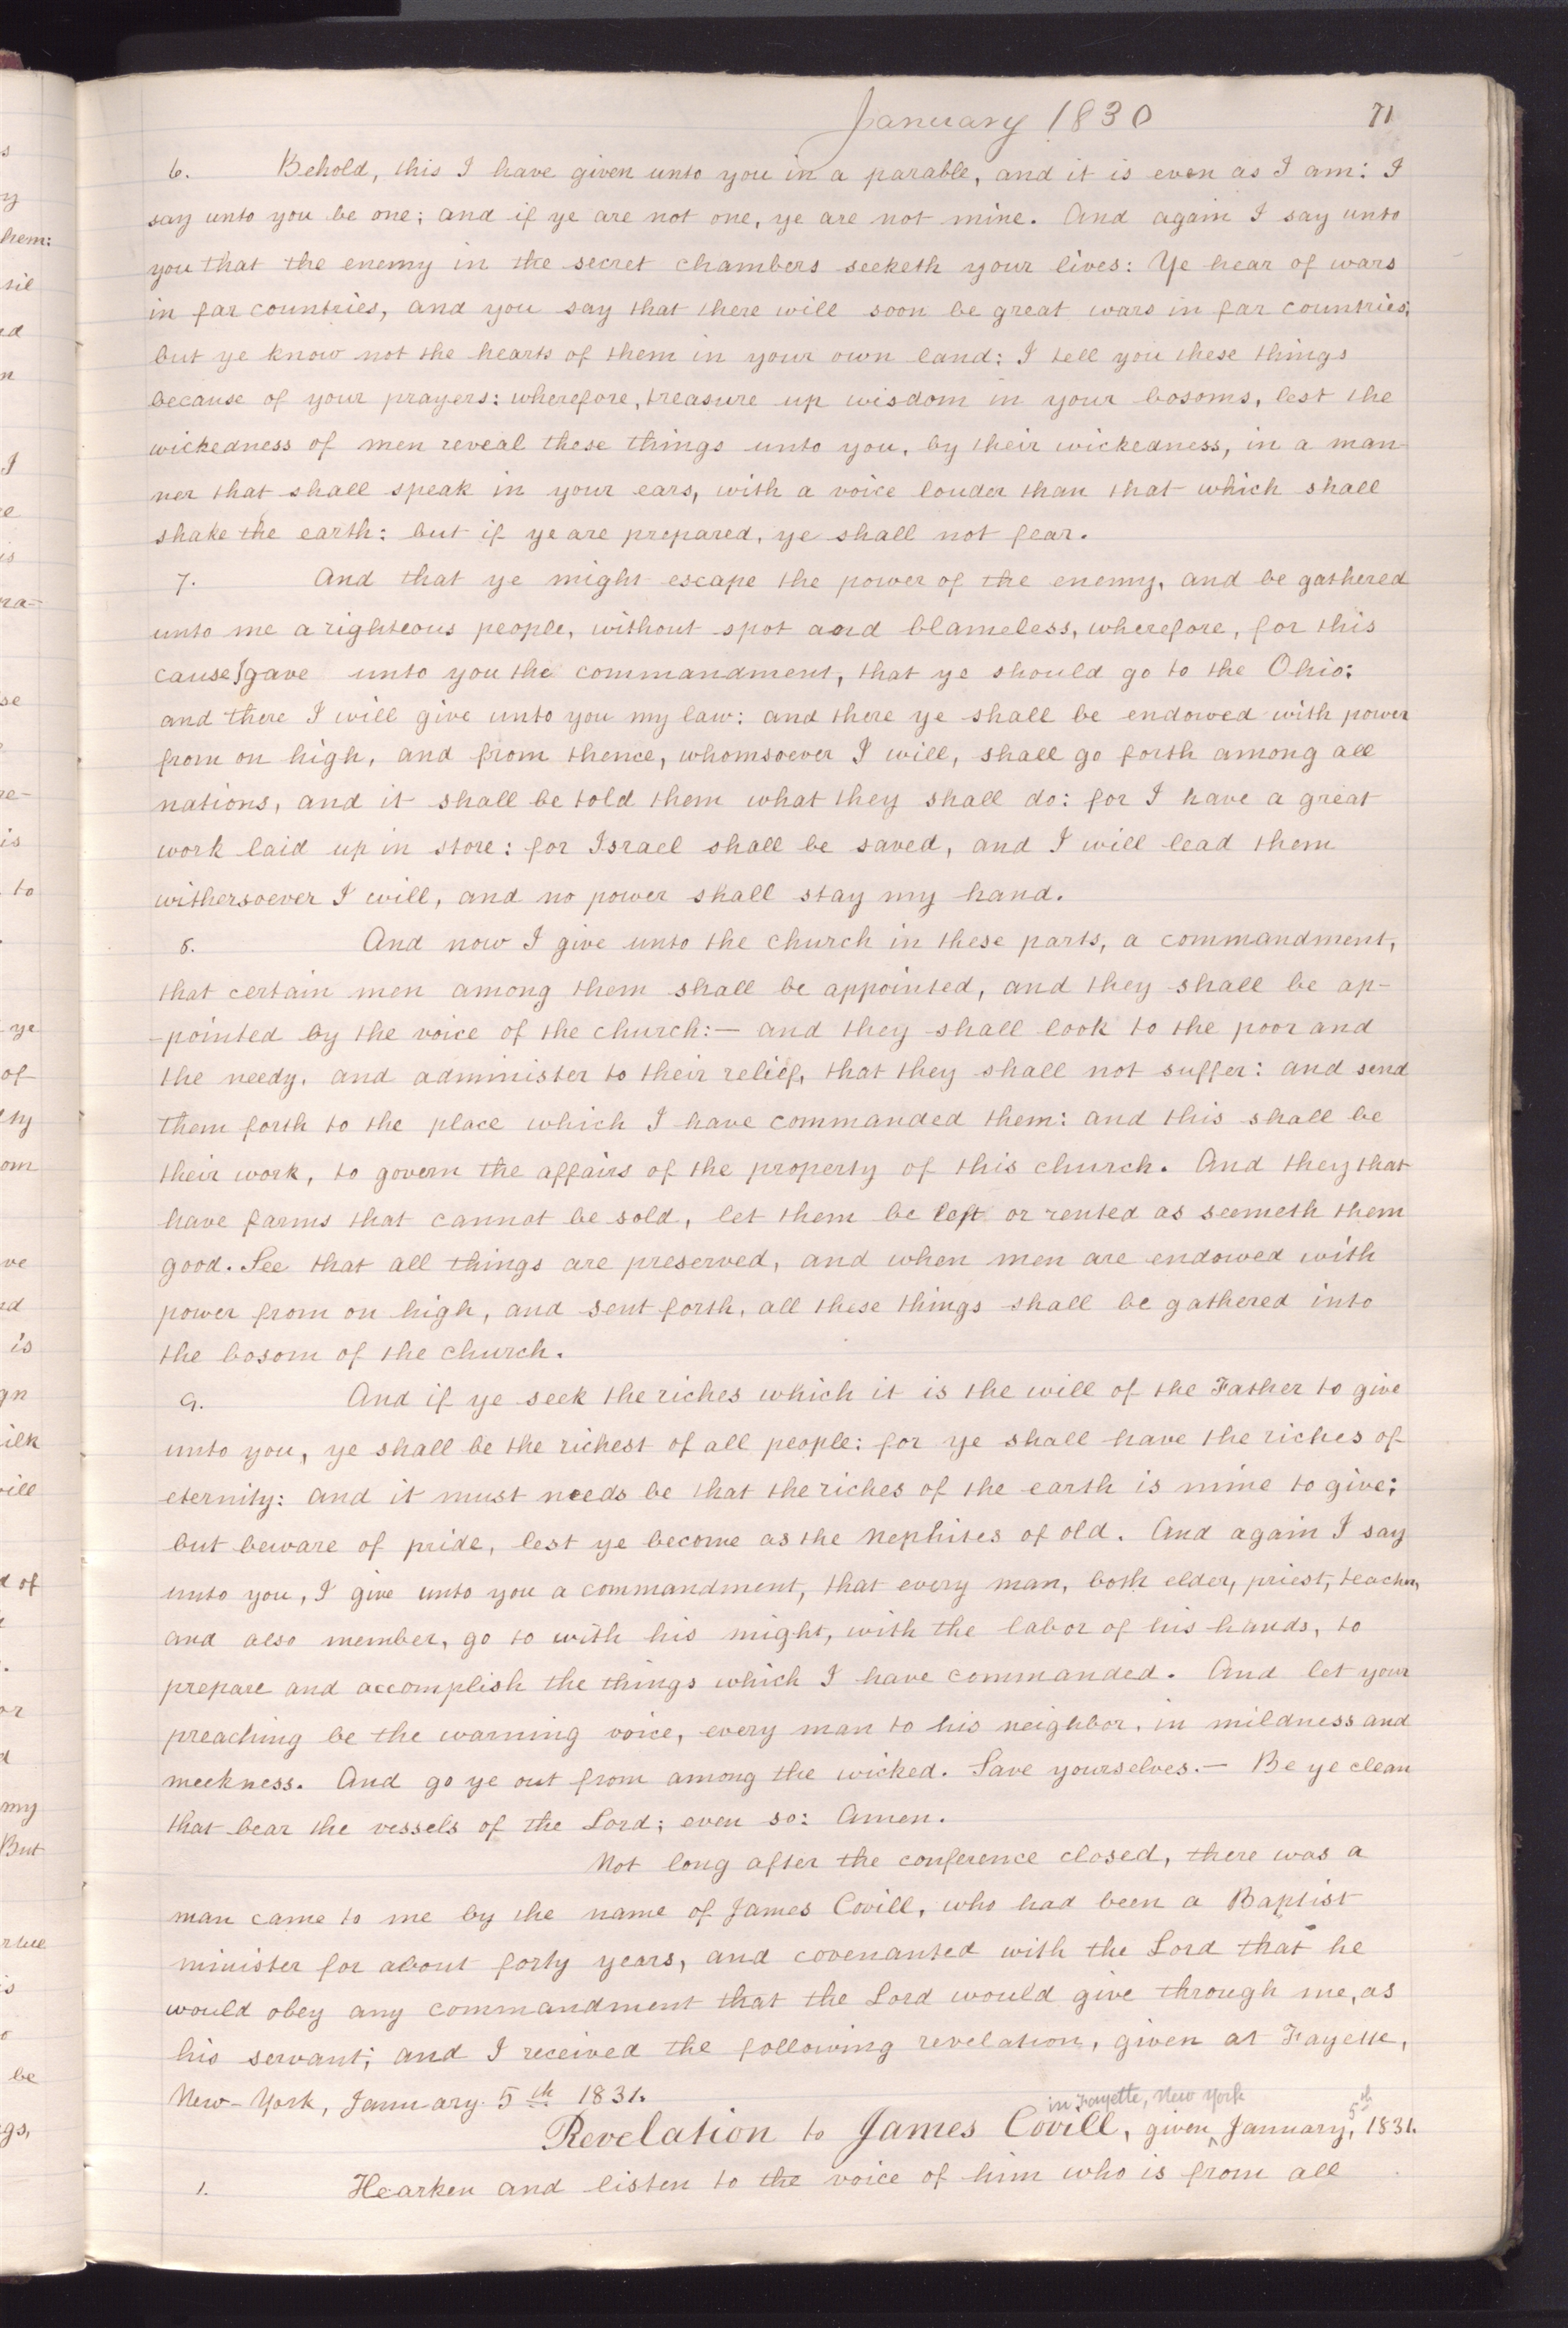 January 1830
71
6. Behold, this I have given unto you in a parable, and it is even as I am: I
say unto you be one; and if ye are not one, ye are not mine. And again I say unto
you that the enemy in the secret chambers seeketh your lives: Ye hear of wars
in far countries, and you say that there will soon be great wars in far countries,
but ye know not the hearts of them in your own land: I tell you these things
because of your prayers: wherefore, treasure up wisdom in your bosoms, lest the
wickedness of men reveal these things unto you, by their wickedness, in a man-
ner that shall speak in your ears, with a voice louder than that which shall
shake the earth: but if ye are prepared, ye shall not fear.
7. And that ye might escape the power of the enemy, and be gathered
unto me a righteous people, without spot and blameless, wherefore, for this
cause I gave unto you the commandment, that ye should go to the Ohio:
and there I will give unto you my law: and there ye shall be endowed with power
from on high, and from thence, whomsoever I will, shall go forth among all
nations, and it shall be told them what they shall do: for I have a great
work laid up in store: for Israel shall be saved, and I will lead them
withersoever I will, and no power shall stay my hand.
8. And now I give unto the church in these parts, a commandment,
that certain men among them shall be appointed, and they shall be ap-
-pointed by the voice of the church:— and they shall look to the poor and
the needy, and administer to their relief, that they shall not suffer: and send
them forth to the place which I have commanded them: and this shall be
their work, to govern the affairs of the property of this church. And they that
have farms that cannot be sold, let them be left or rented as seemeth them
good. See that all things are preserved, and when men are endowed with
power from on high, and sent forth, all these things shall be gathered into
the bosom of the church.
9. And if ye seek the riches which it is the will of the Father to give
unto you, ye shall be the richest of all people: for ye shall have the riches of
eternity: and it must needs be that the riches of the earth is mine to give:
but beware of pride, lest ye become as the Nephites of old. And again I say
unto you, I give unto you a commandment, that every man, both elder, priest, teacher,
and also member, go to with his might, with the labor of his hands, to
prepare and accomplish the things which I have commanded. And let your
preaching be the warning voice, every man to his neighbor, in mildness and
meekness. And go ye out from among the wicked. Save yourselves.— Be ye clean
that bear the vessels of the Lord; even so: Amen.
Not long after the conference closed, there was a
man came to me by the name of James Covill, who had been a Baptist
minister for about forty years, and covenanted with the Lord that he
would obey any commandment that the Lord would give through me, as
his servant; and I received the following revelation, given at Fayette,
New-York, January 5th 1831.
in Fayette, New York
5th
Revelation to James Covill, given ^ January, 1831.
1. Hearken and listen to the voice of him who is from all